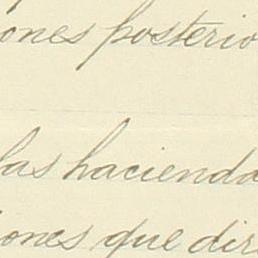 ones posterio
las hacienda
iones que dir